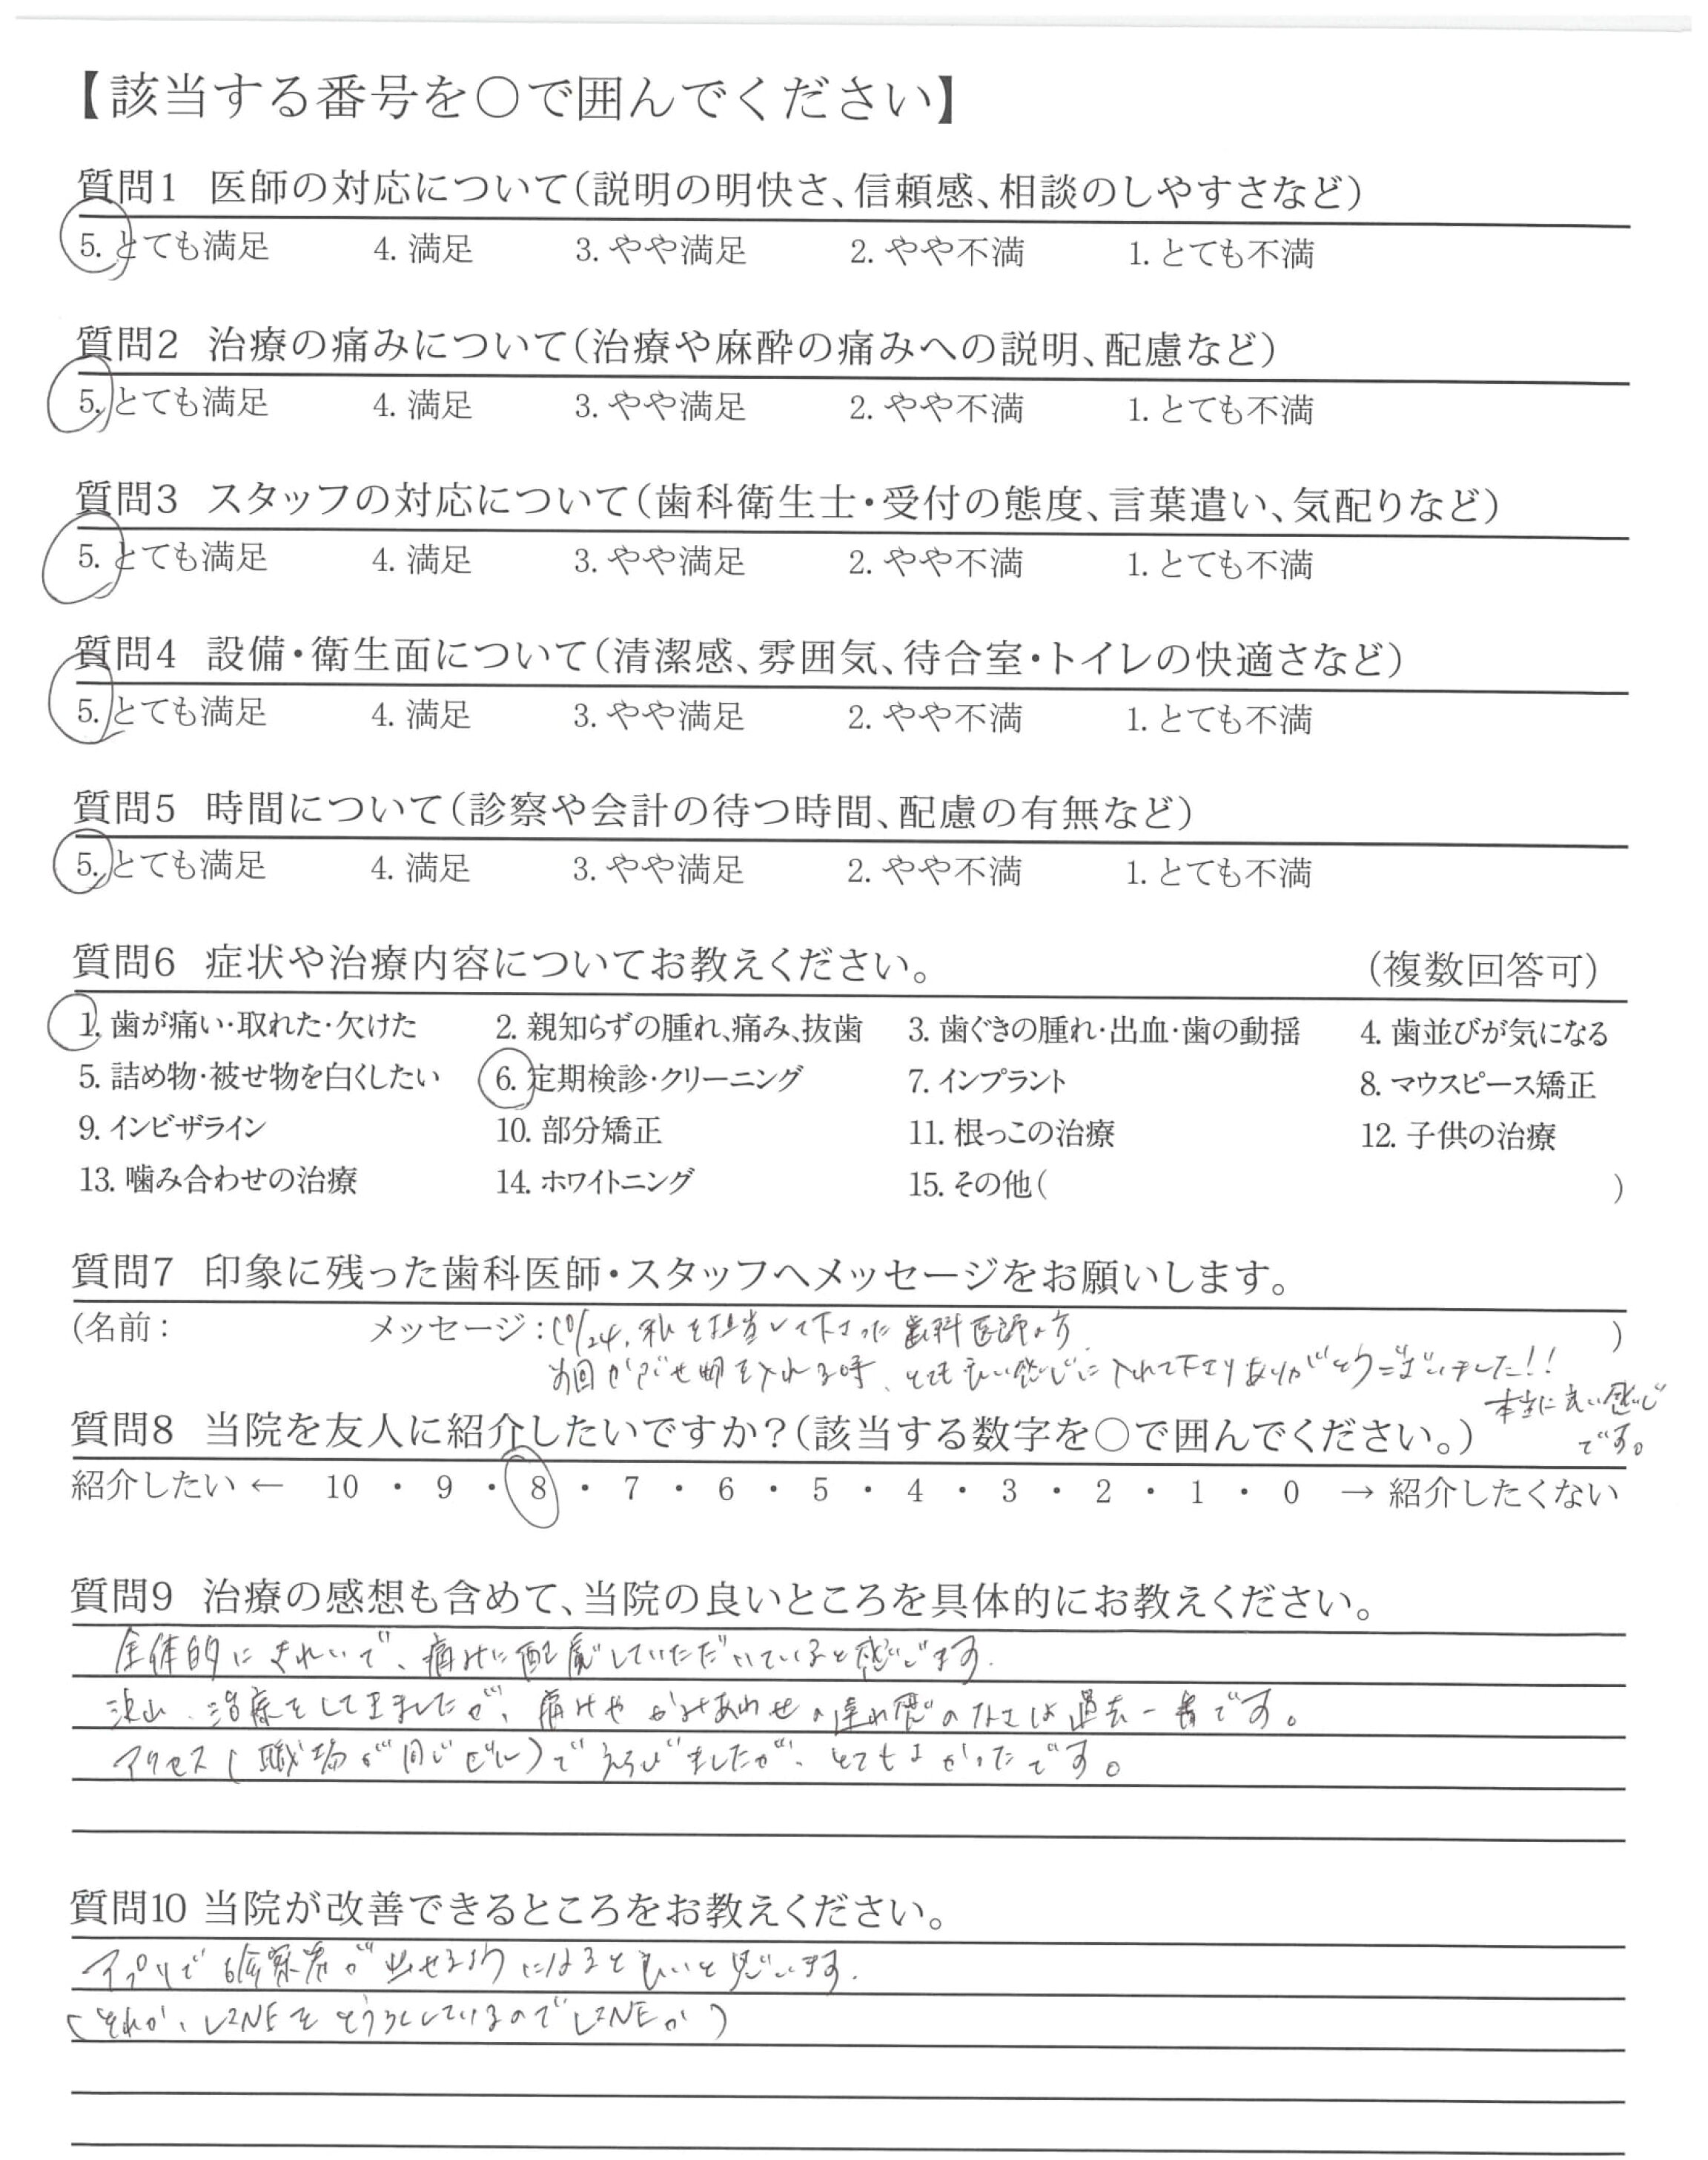 【該当する番号を○で囲んでください】
質問1 医師の対応について(説明の明快さ、信頼感、相談のしやすさなど)
5. とても満足 4. 満足 3. やや満足 2. やや不満 1. とても不満
質問2 治療の痛みについて(治療や麻酔の痛みへの説明、配慮など)
5. とても満足 4. 満足 3. やや満足 2. やや不満 1. とても不満
質問3 スタッフの対応について(歯科衛生士・受付の態度、言葉遣い、気配りなど)
5. とても満足 4. 満足 3. やや満足 2. やや不満 1. とても不満
質問4 設備・衛生面について(清潔感、雰囲気、待合室・トイレの快適さなど)
5. とても満足 4. 満足 3. やや満足 2. やや不満 1. とても不満
質問5 時間について(診察や会計の待つ時間、配慮の有無など)
5. とても満足 4. 満足 3. やや満足 2. やや不満 1. とても不満
質問6 症状や治療内容についてお教えください。 (複数回答可)
1. 歯が痛い・取れた・欠けた 2. 親知らずの腫れ、痛み、抜歯 3. 歯ぐきの腫れ・出血・歯の動揺 4. 歯並びが気になる
5. 詰め物・被せ物を白くしたい 6. 定期検診・クリーニング 7. インプラント 8. マウスピース矯正
9. インビザライン 10. 部分矯正 11. 根っこの治療 12. 子供の治療
13. 噛み合わせの治療 14. ホワイトニング 15. その他( )
質問7 印象に残った歯科医師・スタッフへメッセージをお願いします。
(名前: メッセージ: 10/24, 私を担当して下さった歯科医師の方 )
前回かぶせ物を入れる時、とても良い感じに入れて下さりありがとうございました!!
本当に良い感じ
です。
質問8 当院を友人に紹介したいですか?(該当する数字を○で囲んでください。)
紹介したい ← 10 ・ 9 ・ 8 ・ 7 ・ 6 ・ 5 ・ 4 ・ 3 ・ 2 ・ 1 ・ 0 → 紹介したくない
質問9 治療の感想も含めて、当院の良いところを具体的にお教えください。
全体的にきれいで、痛みに配慮していただいていると感じます.
沢山、治療をしてきましたが、痛みやかみあわせの違和感のなさは過去一番です。
アクセス(職場が同じビル)でえらびましたが、とてもよかったです。
質問10 当院が改善できるところをお教えください。
アプリで診察券が出せるようになると良いと思います.
(それか、LINEをとうろくしているのでLINEか)